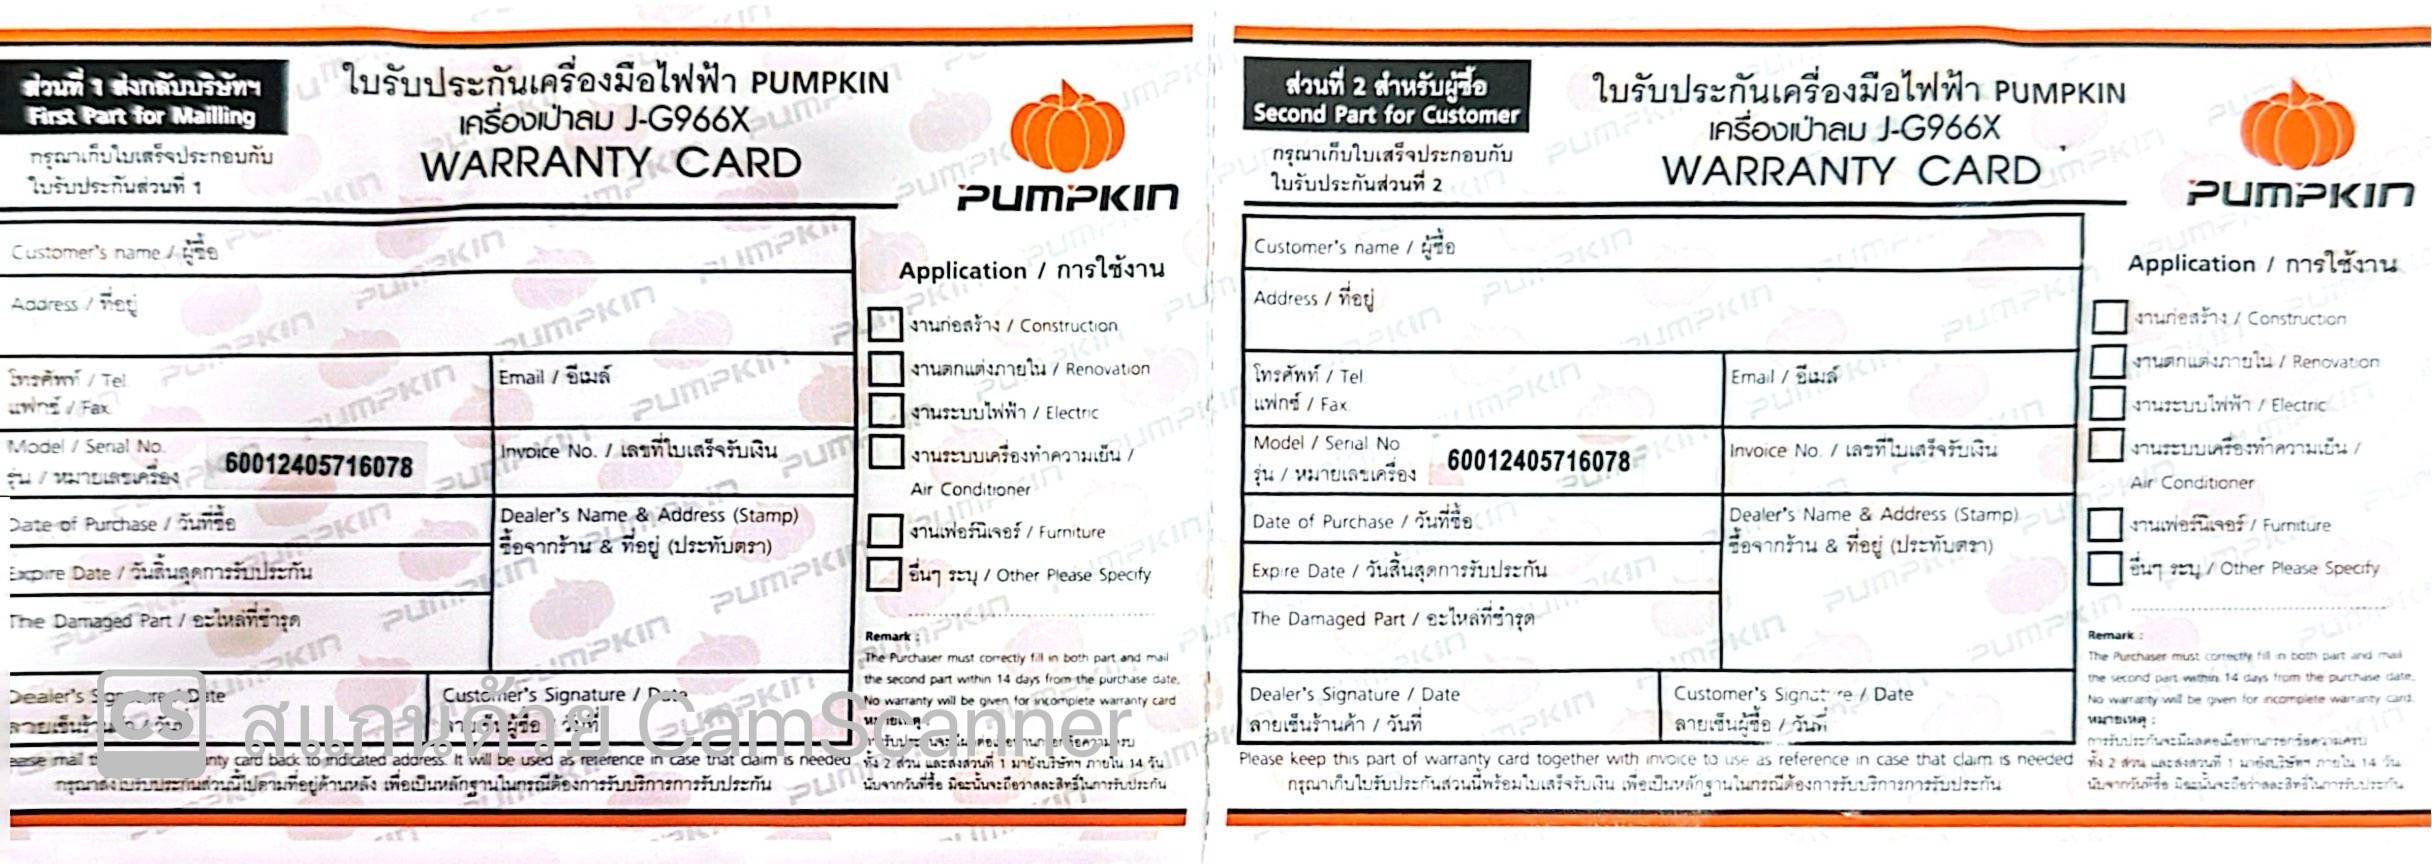 ส่วนที่ 1 ส่งกลับบริษัทฯ
First Part for Mailling
กรุณาเก็บใบเสร็จประกอบกับ
ใบรับประกันส่วนที่ 1
ใบรับประกันเครื่องมือไฟฟ้า PUMPKIN
เครื่องเป่าลม J-G966X
WARRANTY CARD
PUMPKIN
Customer's name / ผู้ซื้อ
Address / ที่อยู่
โทรศัพท์ / Tel.
แฟกซ์ / Fax.
Email / อีเมล์
Model / Serial No.
รุ่น / หมายเลขเครื่อง
60012405716078
Invoice No. / เลขที่ใบเสร็จรับเงิน
Date of Purchase / วันที่ซื้อ
Expire Date / วันสิ้นสุดการรับประกัน
The Damaged Part / อะไหล่ที่ชำรุด
Dealer's Name & Address (Stamp)
ซื้อจากร้าน & ที่อยู่ (ประทับตรา)
Dealer's Signature / Date
ลายเซ็นร้านค้า / วันที่
Customer's Signature / Date
ลายเซ็นผู้ซื้อ / วันที่
nty card back to indicated address. It will be used as reference in case that claim is needed
เพื่อเป็นหลักฐานในกรณีต้องการรับบริการการรับประกัน
Application / การใช้งาน
งานก่อสร้าง / Construction
งานตกแต่งภายใน / Renovation
งานระบบไฟฟ้า / Electric
งานระบบเครื่องทำความเย็น /
Air Conditioner
งานเฟอร์นิเจอร์ / Furniture
อื่นๆ ระบุ / Other Please Specify
Remark :
The Purchaser must correctly fill in both part and mail
the second part within 14 days from the purchase date.
No warranty will be given for incomplete warranty card
หมายเหตุ :
ทั้ง 2 ส่วน และส่งส่วนที่ 1 มายังบริษัทฯ ภายใน 14 วัน
นับจากวันที่ซื้อ มิฉะนั้นจะถือว่าสละสิทธิ์ในการรับประกัน
CS สแกนด้วย CamScanner
ส่วนที่ 2 สำหรับผู้ซื้อ
Second Part for Customer
กรุณาเก็บใบเสร็จประกอบกับ
ใบรับประกันส่วนที่ 2
ใบรับประกันเครื่องมือไฟฟ้า PUMPKIN
เครื่องเป่าลม J-G966X
WARRANTY CARD
PUMPKIN
Customer's name / ผู้ซื้อ
Address / ที่อยู่
โทรศัพท์ / Tel.
แฟกซ์ / Fax.
Email / อีเมล์
Model / Serial No
รุ่น / หมายเลขเครื่อง
60012405716078
Invoice No. / เลขที่ใบเสร็จรับเงิน
Date of Purchase / วันที่ซื้อ
Expire Date / วันสิ้นสุดการรับประกัน
The Damaged Part / อะไหล่ที่ชำรุด
Dealer's Name & Address (Stamp)
ซื้อจากร้าน & ที่อยู่ (ประทับตรา)
Dealer's Signature / Date
ลายเซ็นร้านค้า / วันที่
Customer's Signature / Date
ลายเซ็นผู้ซื้อ / วันที่
Please keep this part of warranty card together with invoice to use as reference in case that claim is needed
กรุณาเก็บใบรับประกันส่วนนี้พร้อมใบเสร็จรับเงิน เพื่อเป็นหลักฐานในกรณีต้องการรับบริการการรับประกัน
Application / การใช้งาน
งานก่อสร้าง / Construction
งานตกแต่งภายใน / Renovation
งานระบบไฟฟ้า / Electric
งานระบบเครื่องทำความเย็น /
Air Conditioner
งานเฟอร์นิเจอร์ / Furniture
อื่นๆ ระบุ / Other Please Specify
Remark :
The Purchaser must correctly fill in both part and mail
the second part within 14 days from the purchase date.
No warranty will be given for incomplete warranty card.
หมายเหตุ :
การรับประกันจะมีผลต่อเมื่อท่านกรอกข้อความครบ
ทั้ง 2 ส่วน และส่งส่วนที่ 1 มายังบริษัทฯ ภายใน 14 วัน
นับจากวันที่ซื้อ มิฉะนั้นจะถือว่าสละสิทธิ์ในการรับประกัน